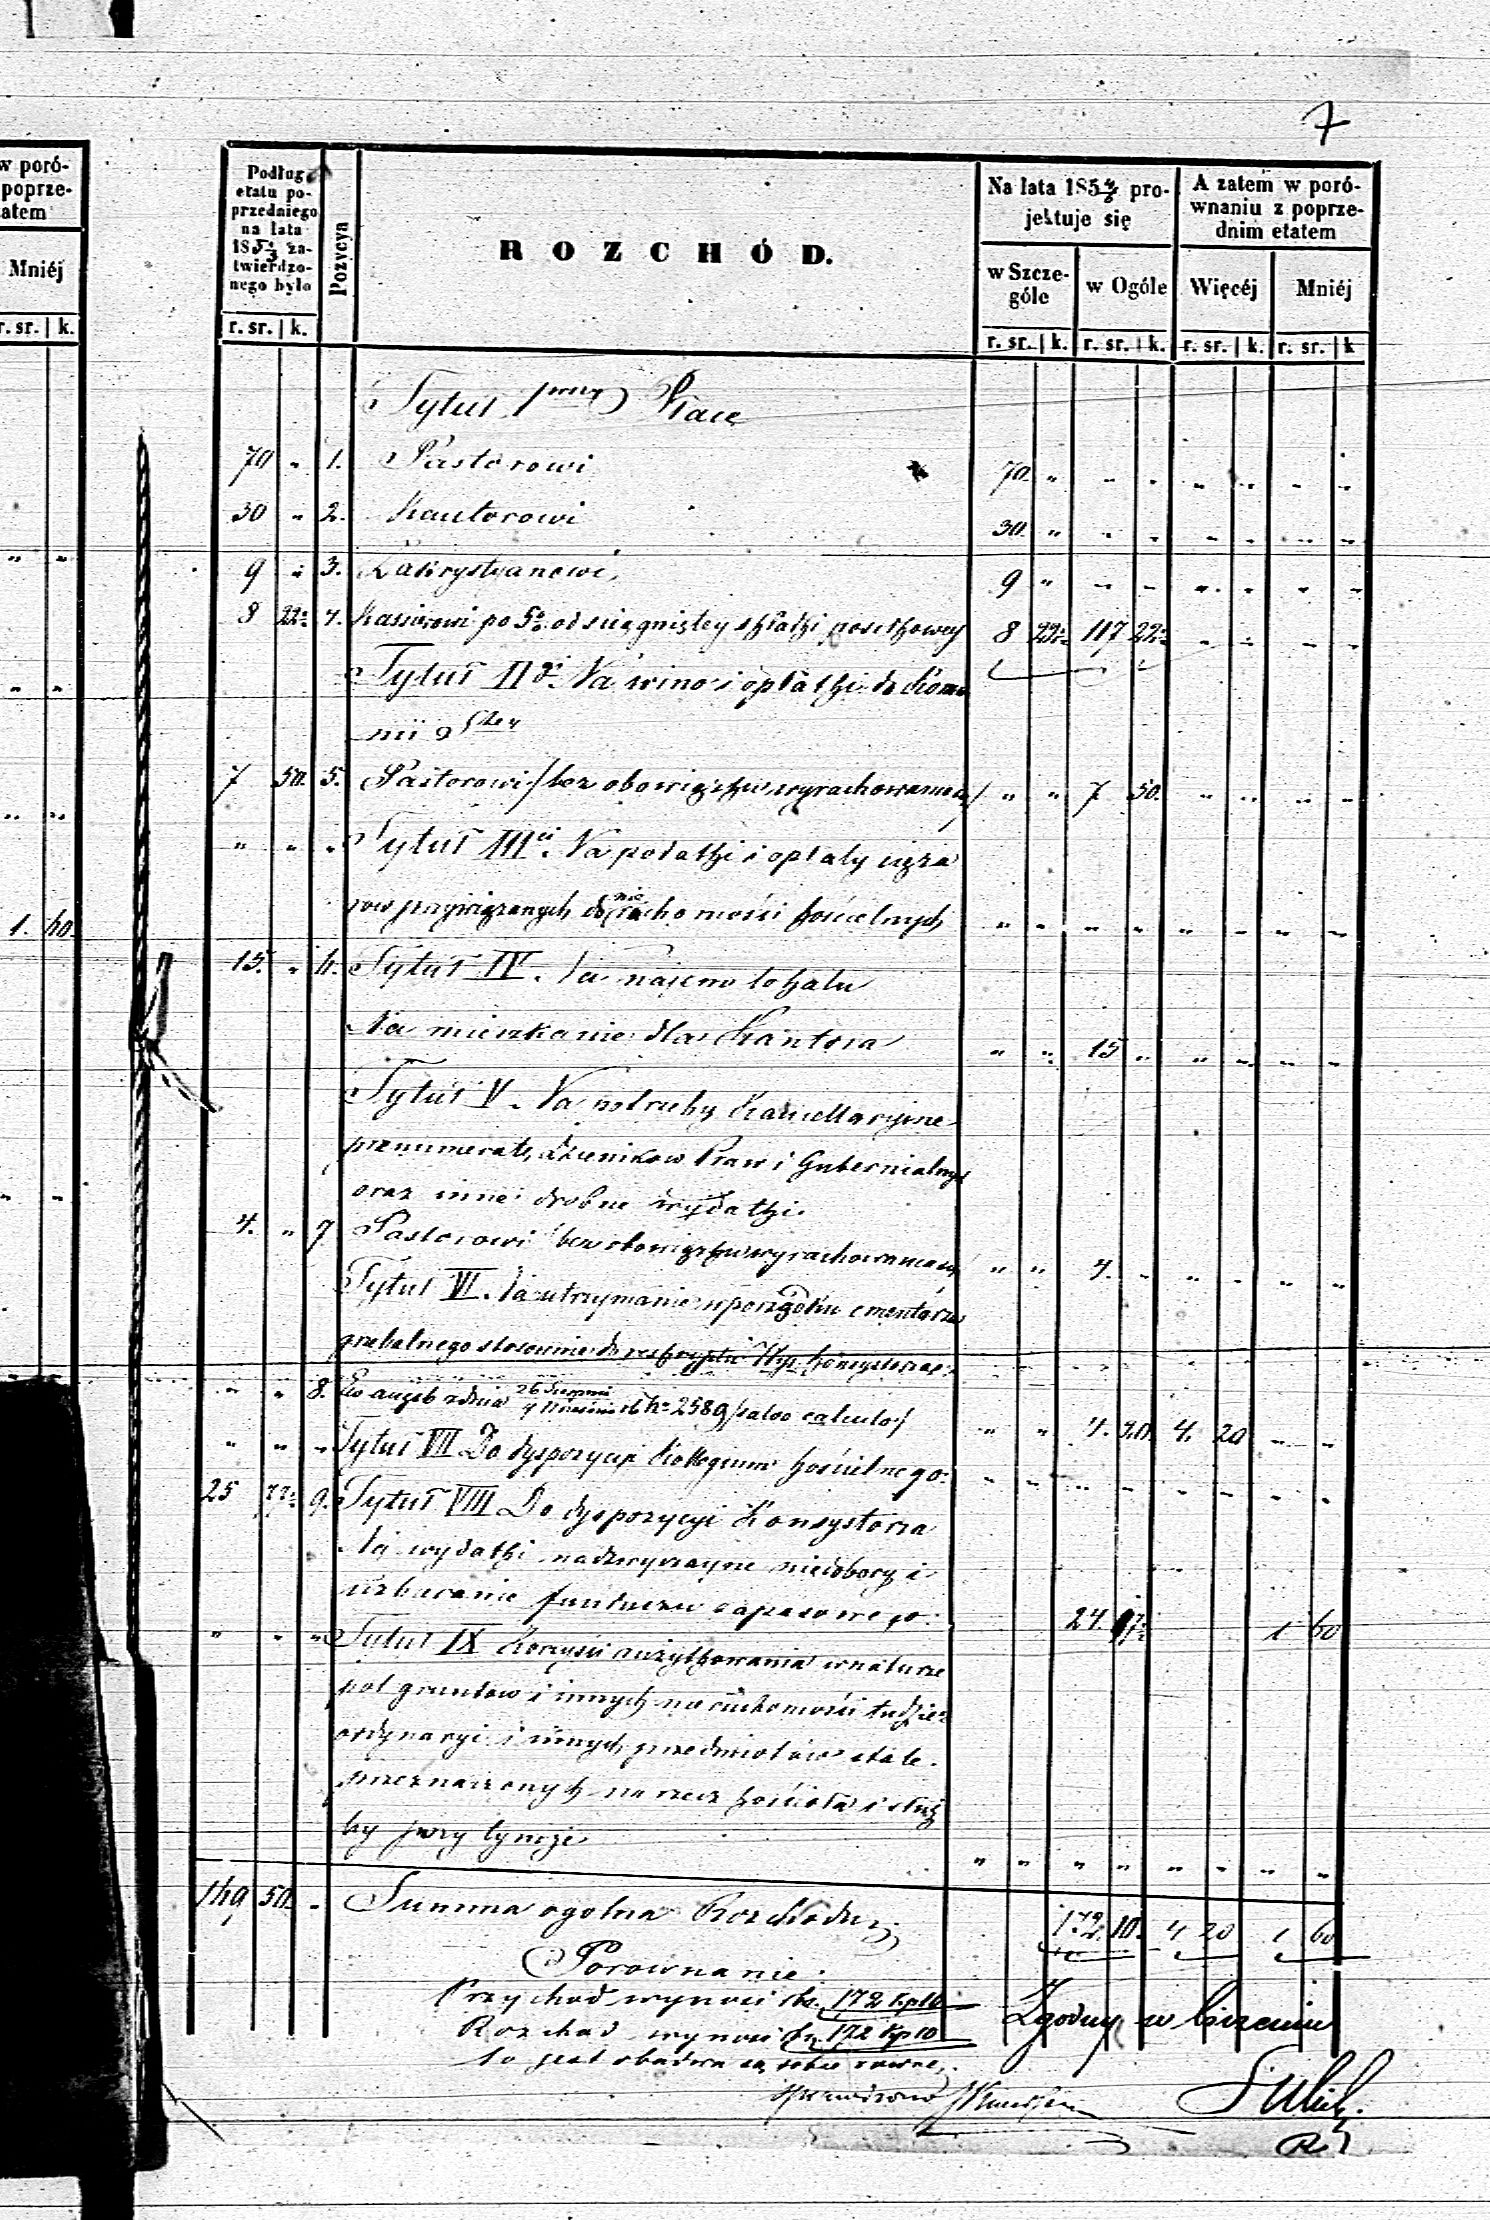 7
w poró-
poprze-
atem
Mniéj
r. sr. k.
1. 60.
Podług etatu poprzedniego na lata 185 1/3 zatwierdzonego było
Pozycya
ROZCHÓD.
Na lata 185 4/6 projektuje się
A zatem w porównaniu z poprzednim etatem
w Szczególe
w Ogóle
Więcéj
Mniéj
r. sr. k. r. sr. k. r. sr. k. r. sr. k. r. sr. k
Tytuł 1wszy Płace
70 " 1. Pastorowi 70. " " " " " " "
30 " 2. Kantorowi 30. " " " " " " "
9 " 3. Zakrystyanowi 9 " " " " " " "
8 22½ 4. Kassierowi po 5% od ściągniętey składki posiłkowey 8 22½ 117 22½ " " " "
Tytuł IIgi. Na wino i opłatki do Kommu
nii Stey
7 50. 5. Pastorowi /bez obowiązku wyrachowania się/ " " 7 50. " " " "
" " " Tytuł IIIci. Na podatki i opłaty cięża
rów przywiązanych do nieruchomości kościelnych " " " " " " " "
15. " 6. Tytuł IV. Na najem lokalu
Na mieszkanie dla Kantora " " 15 " " " " "
Tytuł V. Na potrzeby Kancellaryjne
prenumeratę Dzienników Praw i Gubernialnych
oraz inne drobne wydatki
4. " 7 Pastorowi bez obowiązku wyrachowania się " " 4. " " " " "
Tytuł VI. Na utrzymanie w porządku cmentarza
grzebalnego stosownie do reskryptu Wys. Konsystorza
" " 8. Ew. augsb. z dnia 26 Sierpnia / 7 Września rb Nr 2589 /salvo calculo/ " " 4. 20. 4. 20 " "
" " " Tytuł VII Do dyspozycyi Kollegium kościelnego. " " " " " " " "
25 77½ 9. Tytuł VIII Do dyspozycyi Konsystorza
Na wydatki nadzwyczayne niedobory i
uzbieranie funduszu zapasowego. 24. 17½ 1 60
" " " Tytuł IX Korzyści z użytkowania w naturze
pól gruntów i innych nieruchomości tudzież
ordynaryi i innych przedmiotów stale
przeznaczonych na rzecz kościoła i służ
by przy tymże " " " " " " " "
169 50. " Summa ogólna Rozchodu 172. 10. 4 20 1 60
Porównanie
Przychód wynosi rs. 172 kp 10
Rozchód wynosi rs. 172 kp 10
to jest obadwa są sobie równe.
Zgodny w liczeniu
sprawdzono